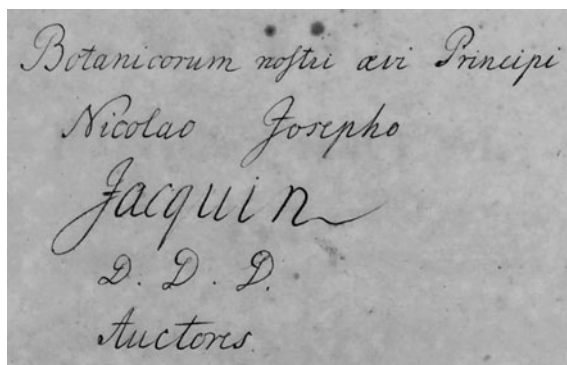 Botanicorum nostri ævi Principi
Nicolao Josepho
Jacquin
D. D. D.
Auctores.